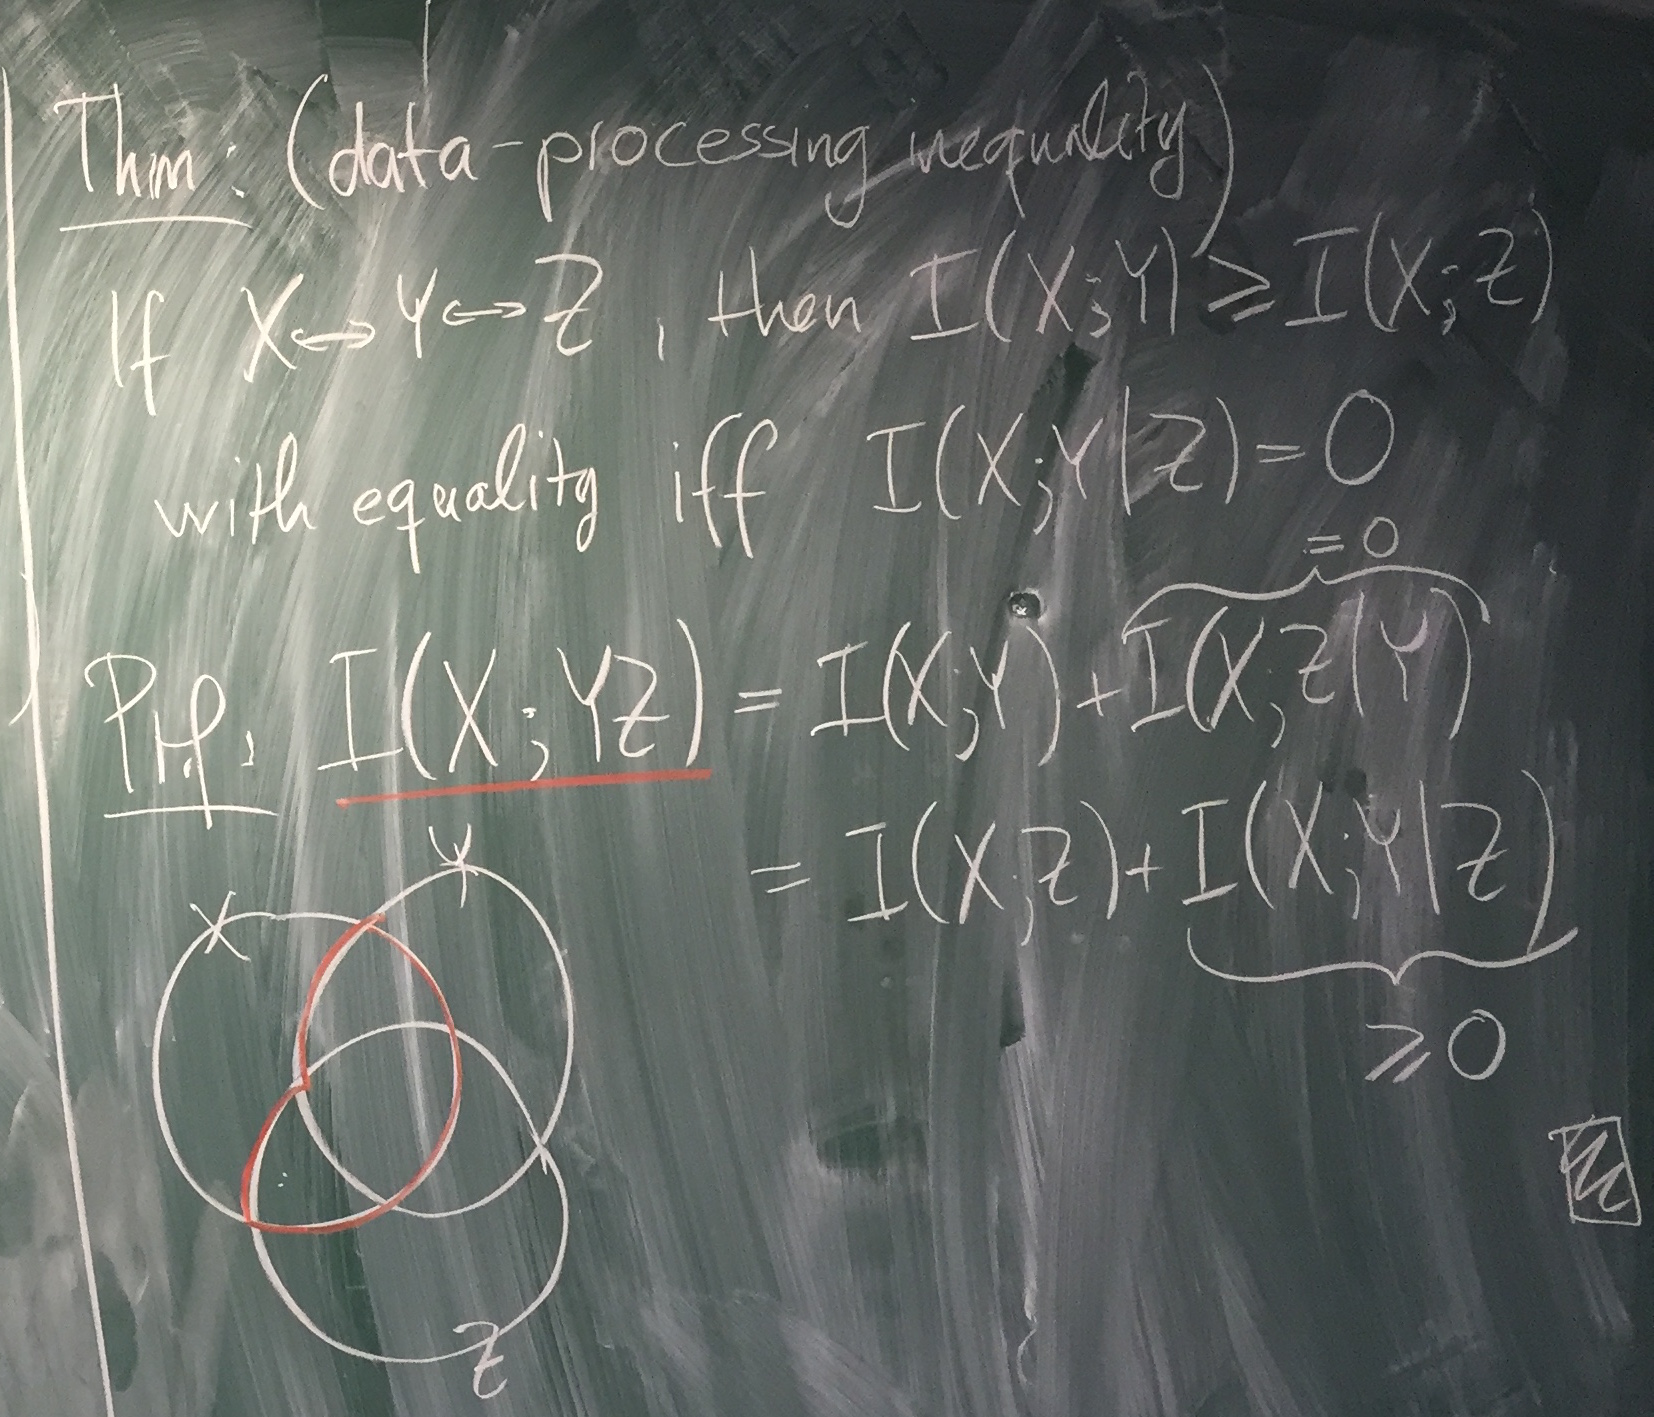 Thm: (data-processing inequality)
If X↔Y↔Z, then I(X;Y) ≥ I(X;Z)
with equality iff I(X;Y|Z) = 0
= 0
Prf: I(X;YZ) = I(X;Y) + I(X;Z|Y)
= I(X;Z) + I(X;Y|Z)
≥ 0
Y
X
Z